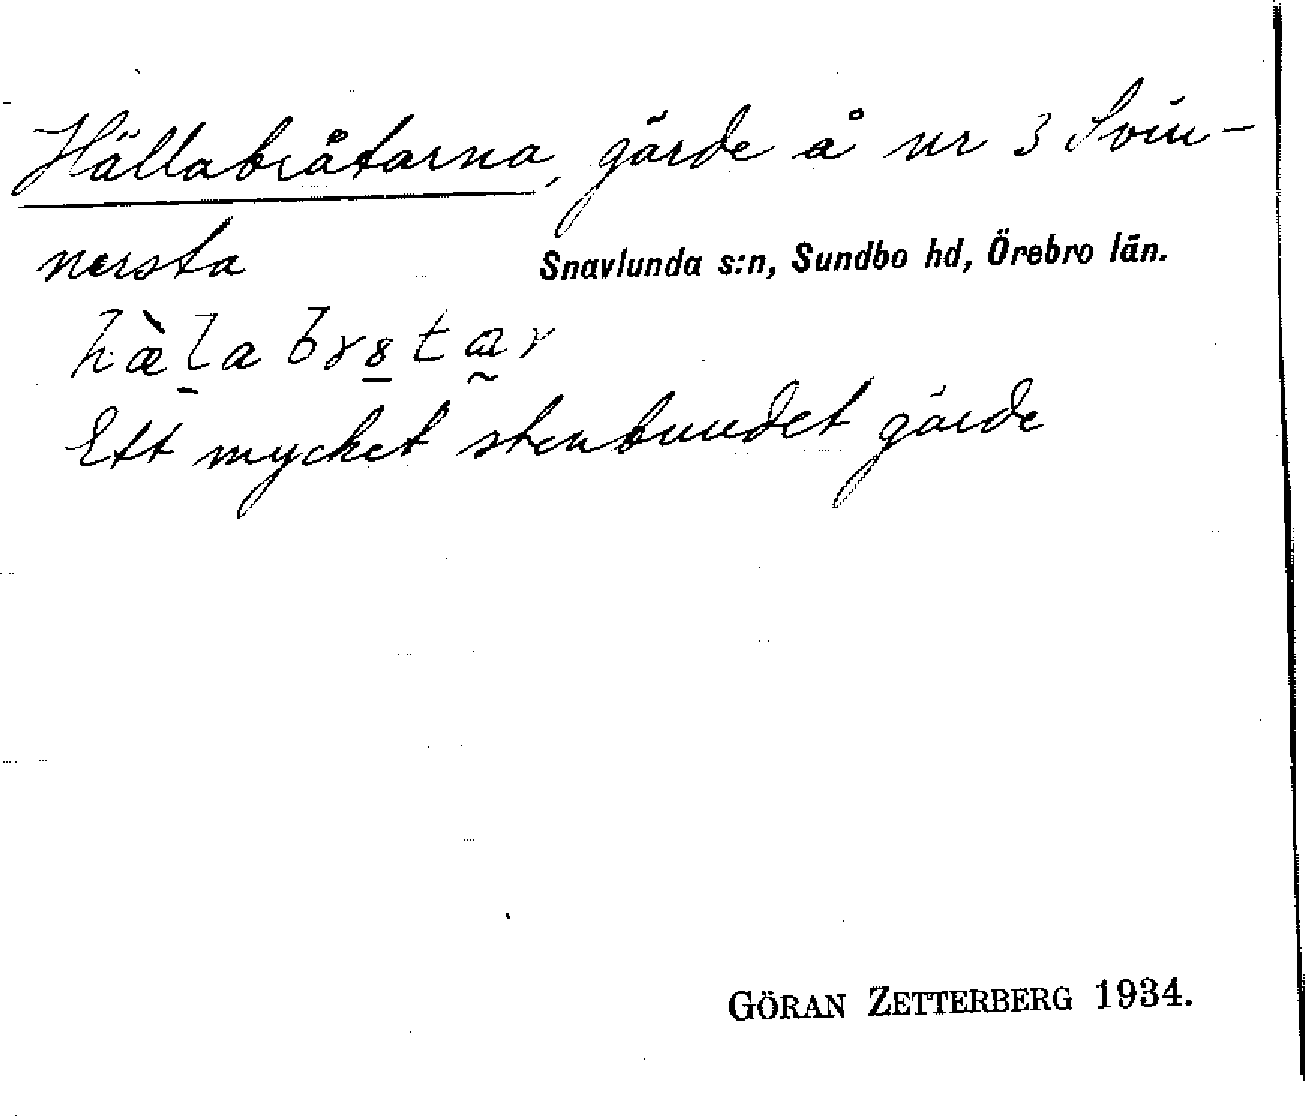 Hällabråtarna, gärde å nr 3 Svin-
nersta
Snavlunda s:n, Sundbo hd, Örebro län.
hæ̀l̠abr8̲ta̰r
Ett mycket stenbundet gärde
GÖRAN ZETTERBERG 1934.